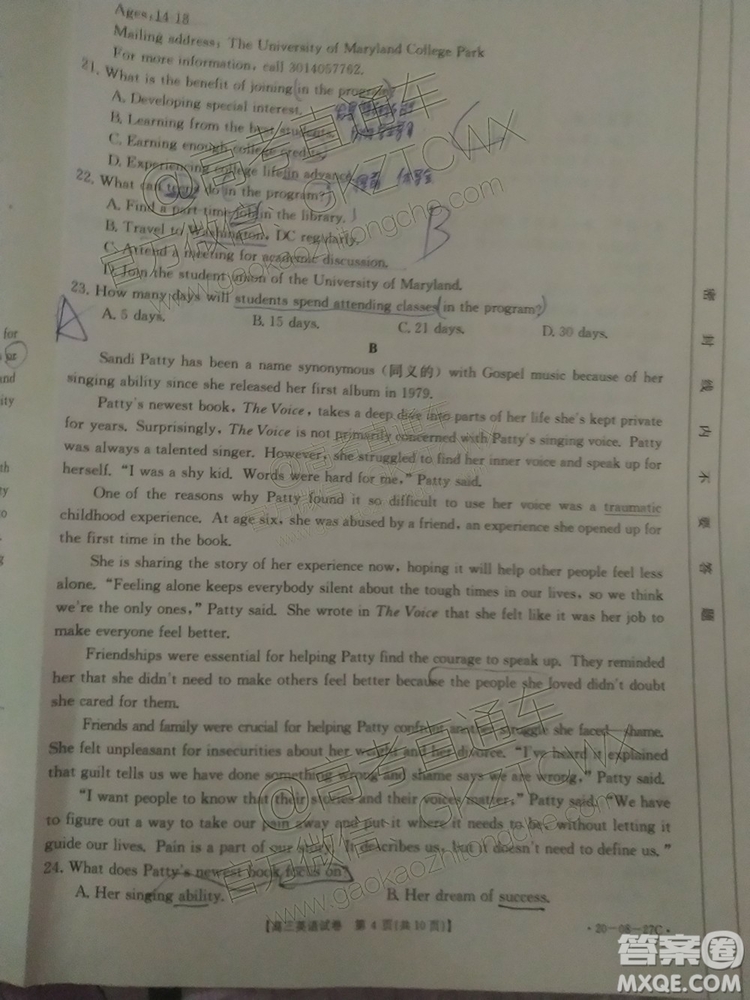 Ages: 14-18
Mailing address: The University of Maryland College Park
For more information, call 3014057762.
21. What is the benefit of joining in the program?
A. Developing special interest.
B. Learning from the best students.
C. Earning enough college credits.
D. Experiencing college life in advance.
22. What can teens do in the program?
A. Find a part-time job in the library.
B. Travel to Washington, DC regularly.
C. Attend a meeting for academic discussion.
D. Join the student union of the University of Maryland.
B
23. How many days will students spend attending classes in the program?
A. 5 days. B. 15 days. C. 21 days. D. 30 days.
A
B
Sandi Patty has been a name synonymous (同义的) with Gospel music because of her
singing ability since she released her first album in 1979.
Patty's newest book, The Voice, takes a deep dive into parts of her life she's kept private
for years. Surprisingly, The Voice is not primarily concerned with Patty's singing voice. Patty
was always a talented singer. However, she struggled to find her inner voice and speak up for
herself. “I was a shy kid. Words were hard for me,” Patty said.
One of the reasons why Patty found it so difficult to use her voice was a traumatic
childhood experience. At age six, she was abused by a friend, an experience she opened up for
the first time in the book.
She is sharing the story of her experience now, hoping it will help other people feel less
alone. “Feeling alone keeps everybody silent about the tough times in our lives, so we think
we're the only ones,” Patty said. She wrote in The Voice that she felt like it was her job to
make everyone feel better.
Friendships were essential for helping Patty find the courage to speak up. They reminded
her that she didn't need to make others feel better because the people she loved didn't doubt
she cared for them.
Friends and family were crucial for helping Patty confront another struggle she faced—shame.
She felt unpleasant for insecurities about her weight and her divorce. “I've heard it explained
that guilt tells us we have done something wrong and shame says we are wrong,” Patty said.
“I want people to know that their stories and their voices matter,” Patty said. “We have
to figure out a way to take our pain away and put it where it needs to be, without letting it
guide our lives. Pain is a part of our story. It describes us, but it doesn't need to define us.”
24. What does Patty's newest book focus on?
A. Her singing ability. B. Her dream of success.
【高三英语试卷 第 4 页(共 10 页)】 ·20-08-27C·
密封线内不要答题
for
at
and
ity
th
ty
to
g
@高考直通车
官方微信：GKZTCWX
www.gaokaozhitongche.com
@高考直通车
官方微信：GKZTCWX
www.gaokaozhitongche.com
答案圈
MXQE.COM